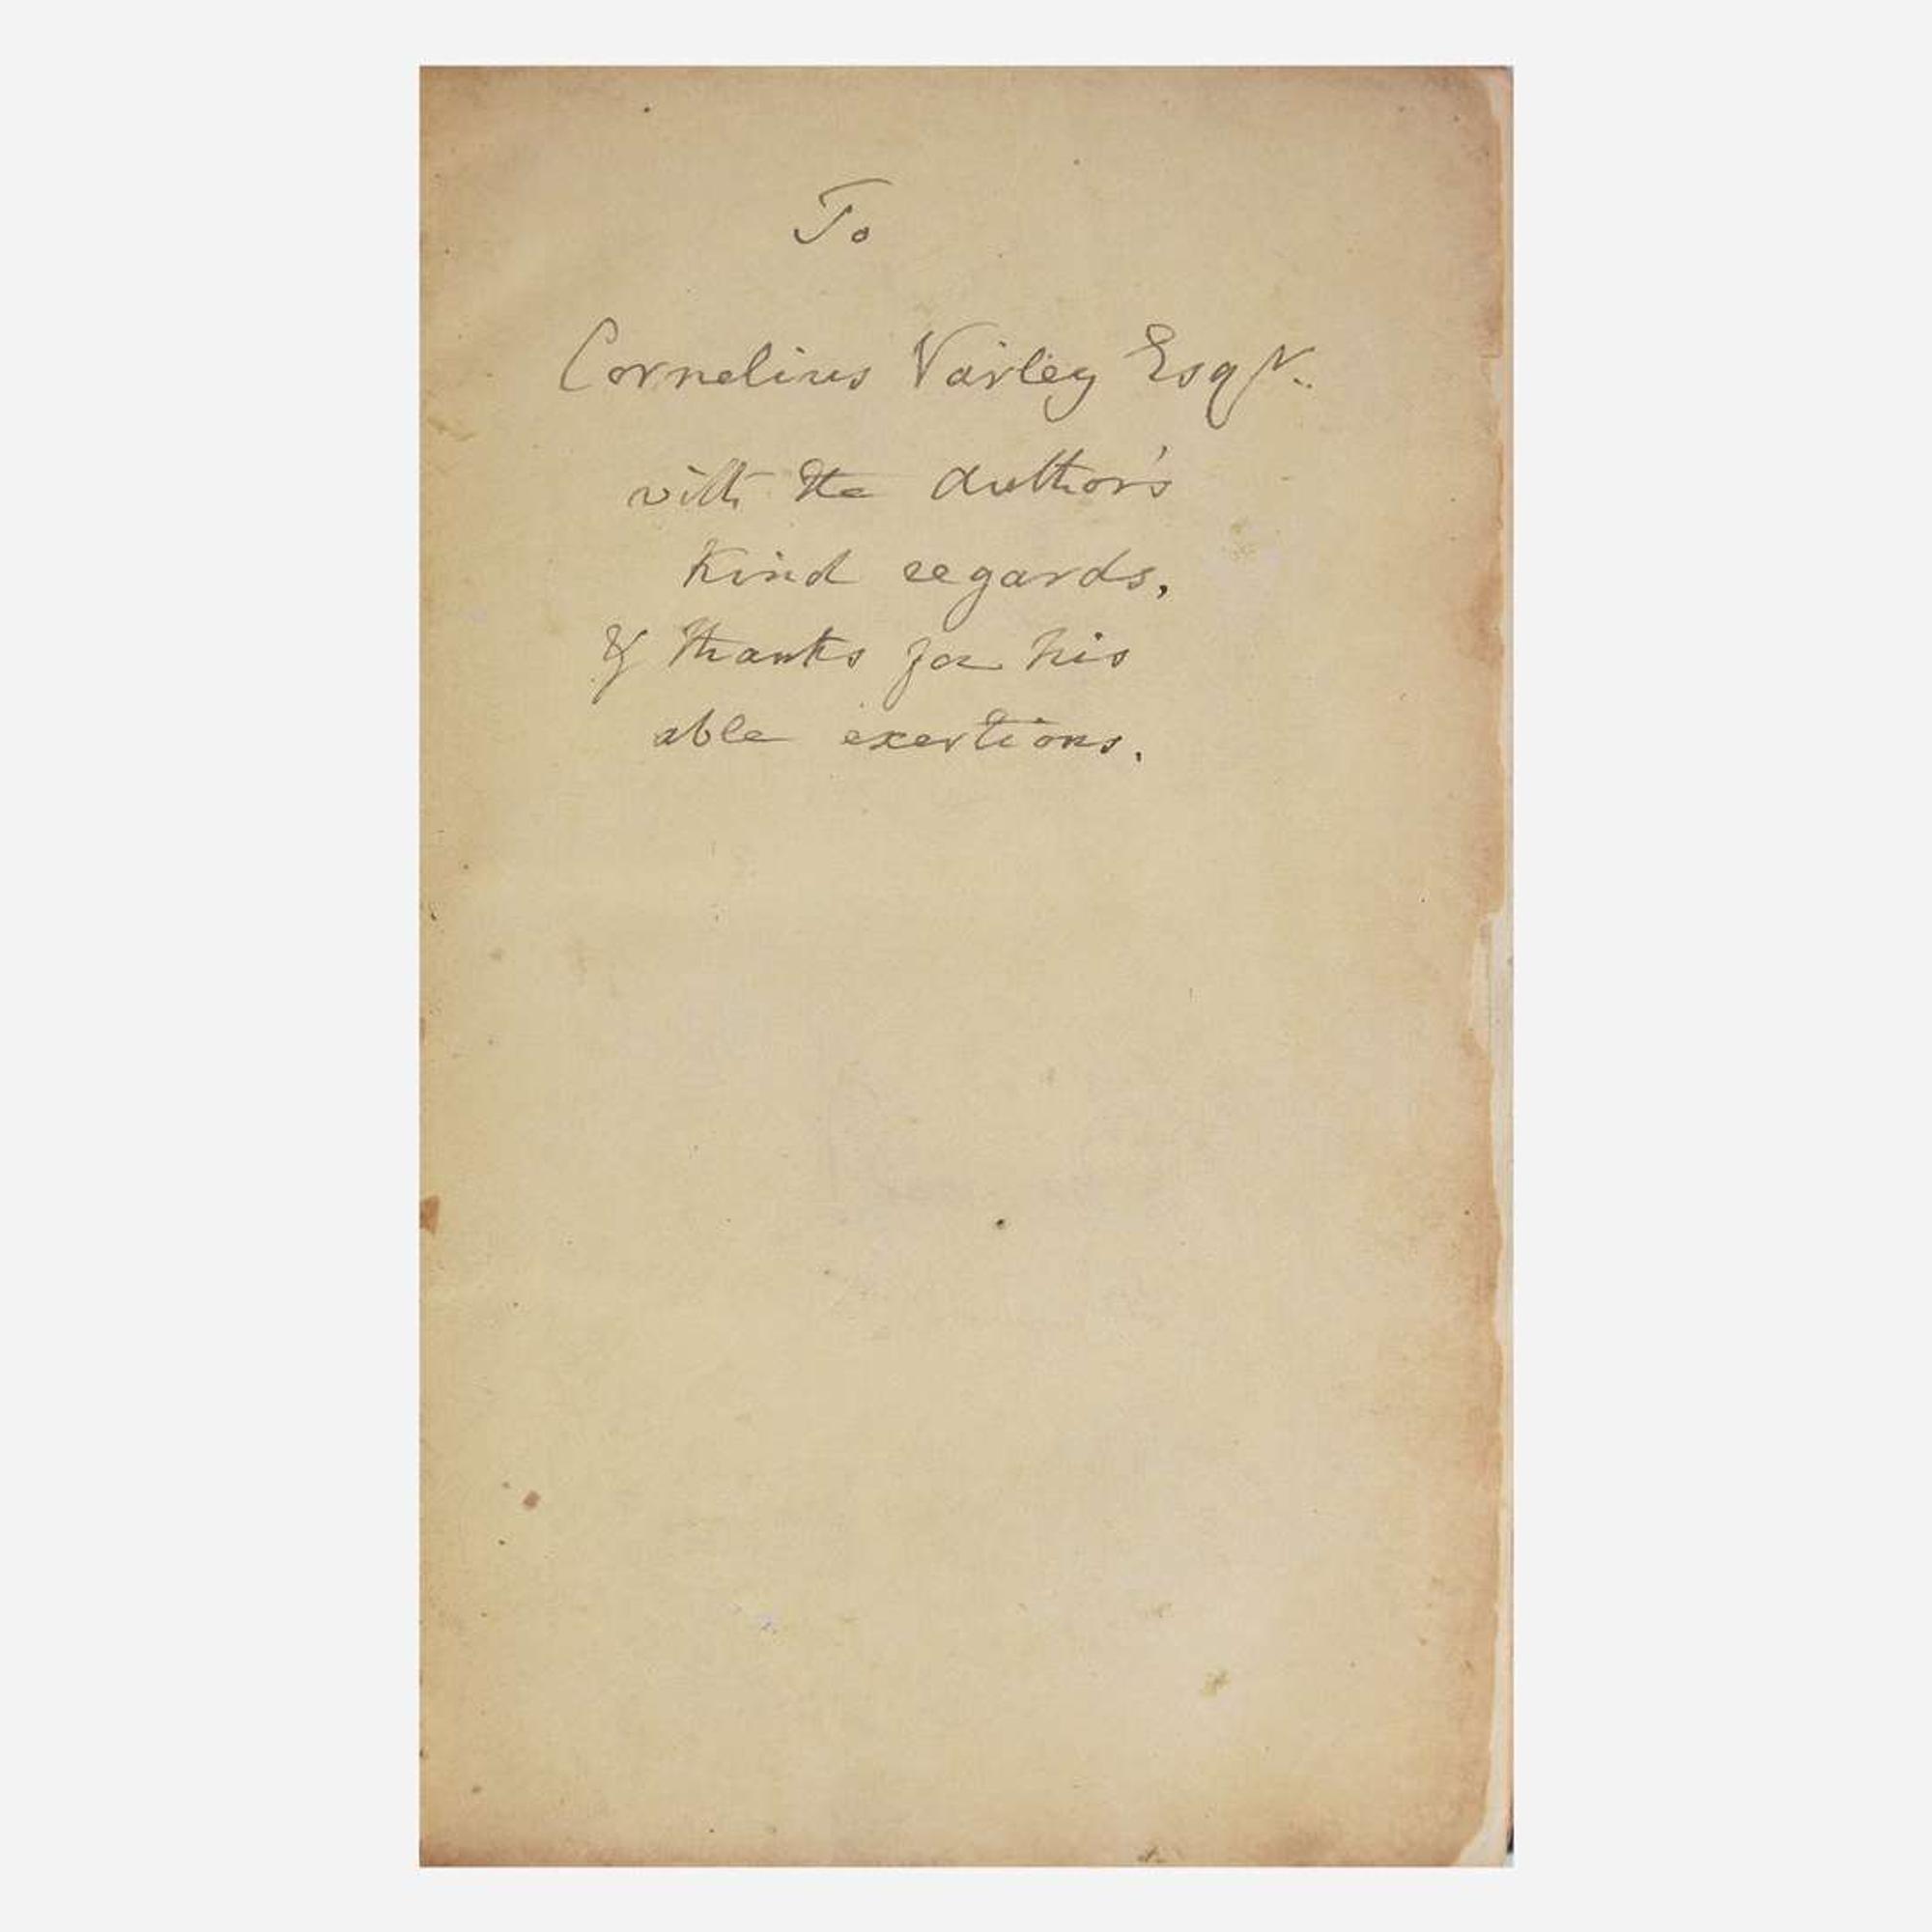 To
Cornelius Varley Esqr.
with the Author's
Kind regards,
& thanks for his
able exertions.